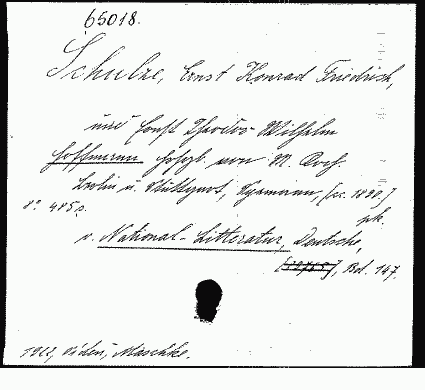 65018.
Schulze, Ernst Konrad Friedrich,
und Ernst Theodor Wilhelm
Hoffmann hrsgb. von M. Koch.
Berlin u. Stuttgart, Spemann, [sc. 1890.]
8°. 485 s.
v. National-Litteratur, Deutsche,
Bd. 147.
1922,